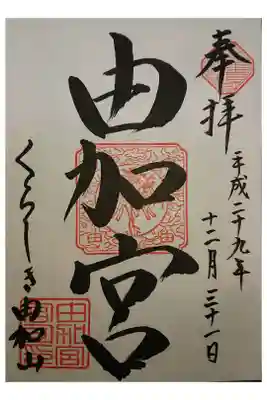 奉拝
平成二十九年
十二月三十一日
由加宮
くらしき由加山